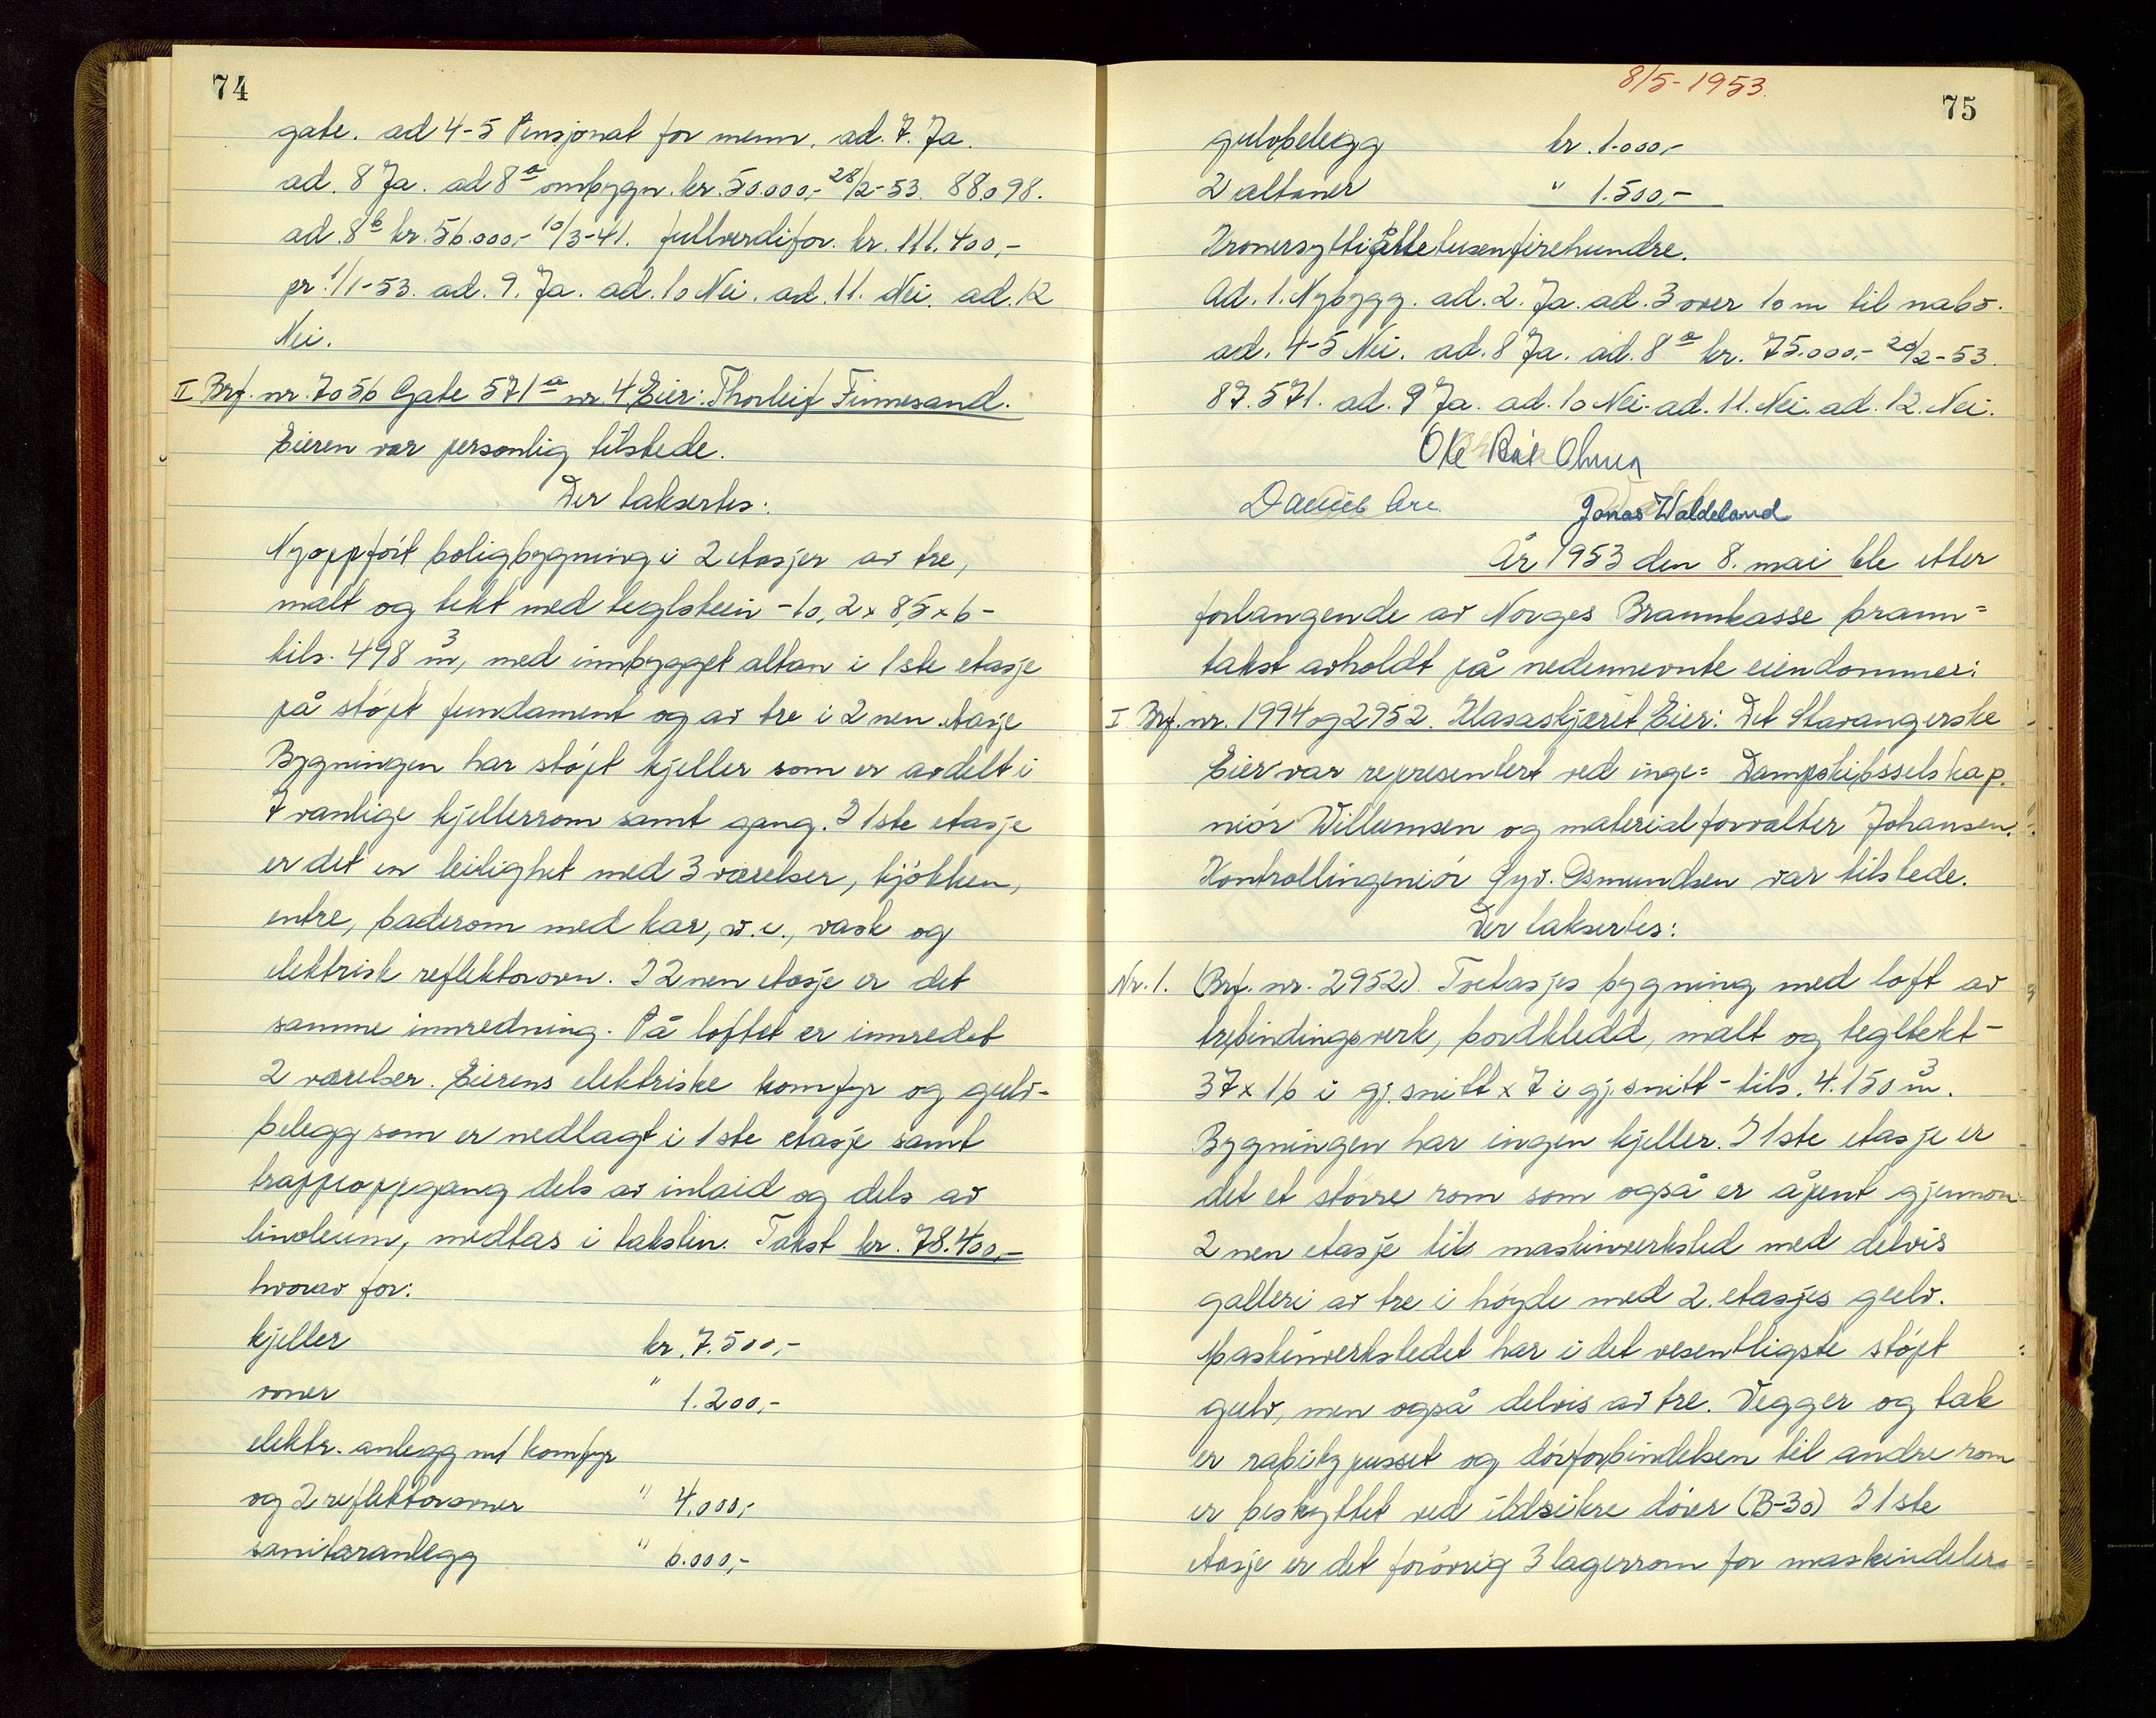 74
gate. ad 4-5 Pensjonat for menn. ad. 7. Ja.
ad. 8 Ja. ad 8a ombygn. kr. 50.000,- 28/2-53. 88098.
ad. 8b kr. 56.000,- 10/3-41. fullverdifor. kr. 111.400,-
pr. 1/1-53. ad. 9. Ja. ad. 10 Nei. ad. 11. Nei. ad. 12
Nei.
II Brf. nr. 7056 Gate 571a nr. 4 Eier: Thorleif Finnesand.
Eieren var personlig tilstede.
Der taksertes:
Nyoppført boligbygning i 2 etasjer av tre,
malt og tekt med teglstein - 10,2 x 8,5 x 6 -
tils. 498 m3, med innbygget altan i 1ste etasje
på støpt fundament og av tre i 2nen etasje
Bygningen har støpt kjeller som er avdelt i
7 vanlige kjellerrom samt gang. I 1ste etasje
er det en leilighet med 3 værelser, kjøkken,
entre, baderom med kar, w.c., vask og
elektrisk reflektorovn. I 2nen etasje er det
samme innredning. På loftet er innredet
2 værelser. Eierens elektriske komfyr og gulv-
belegg som er nedlagt i 1ste etasje samt
trappeoppgang dels av inlaid og dels av
linoleum, medtas i taksten. Takst kr. 78.400,-
hvorav for:
kjeller kr. 7.500,-
ovner " 1.200,-
elektr. anlegg m/ komfyr
og 2 reflektorovner " 4.000,-
sanitæranlegg " 6.000,-
8/5-1953.
75
gulvbelegg kr. 1.000,-
2 altaner " 1.500,-
Kronersyttiåttetusenfirehundre.
Ad. 1. Nybygg. ad. 2. Ja. ad. 3 over 10 m til nabo.
ad. 4-5 Nei. ad. 8 Ja. ad. 8a kr. 75.000,- 20/2-53.
87.571. ad. 9 Ja. ad. 10 Nei. ad. 11. Nei. ad. 12. Nei.
Ole
Jonas Waldeland
År 1953 den 8. mai ble etter
forlangende av Norges Brannkasse brann=
takst avholdt på nedennevnte eiendommer:
I Brf. nr. 1994 og 2952. Klasaskjæret Eier: Det Stavangerske
Eier var representert ved inge= Dampskibsselskap.
niør Willumsen og materialforvalter Johansen.
Kontrollingeniør Gyv. Osmundsen var tilstede.
Der taksertes:
Nr. 1. (Brf. nr. 2952). Toetasjes bygning med loft av
trebindingsverk, bordkledd, malt og tegltekt -
37 x 16 i gj.snitt x 7 i gj.snitt - tils. 4.150 m3.
Bygningen har ingen kjeller. I 1ste etasje er
det et større rom som også er åpent gjennom
2nen etasje til maskinverksted med delvis
galleri av tre i høyde med 2. etasjes gulv.
Maskinverkstedet har i det vesentligste støpt
gulv, men også delvis av tre. Vegger og tak
er rabitzpusset og dørforbindelsen til andre rom
er beskyttet ved ildsikre dører (B-30) I 1ste
etasje er det forøvrig 3 lagerrom for maskindeler